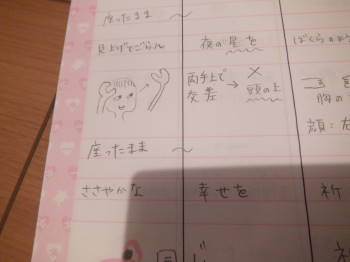 座ったまま 〜
見上げてごらん 夜の星を ぼくらの
両手上で 交差 → × 頭の上
胸の
顔:左
座ったまま 〜
ささやかな 幸せを 祈